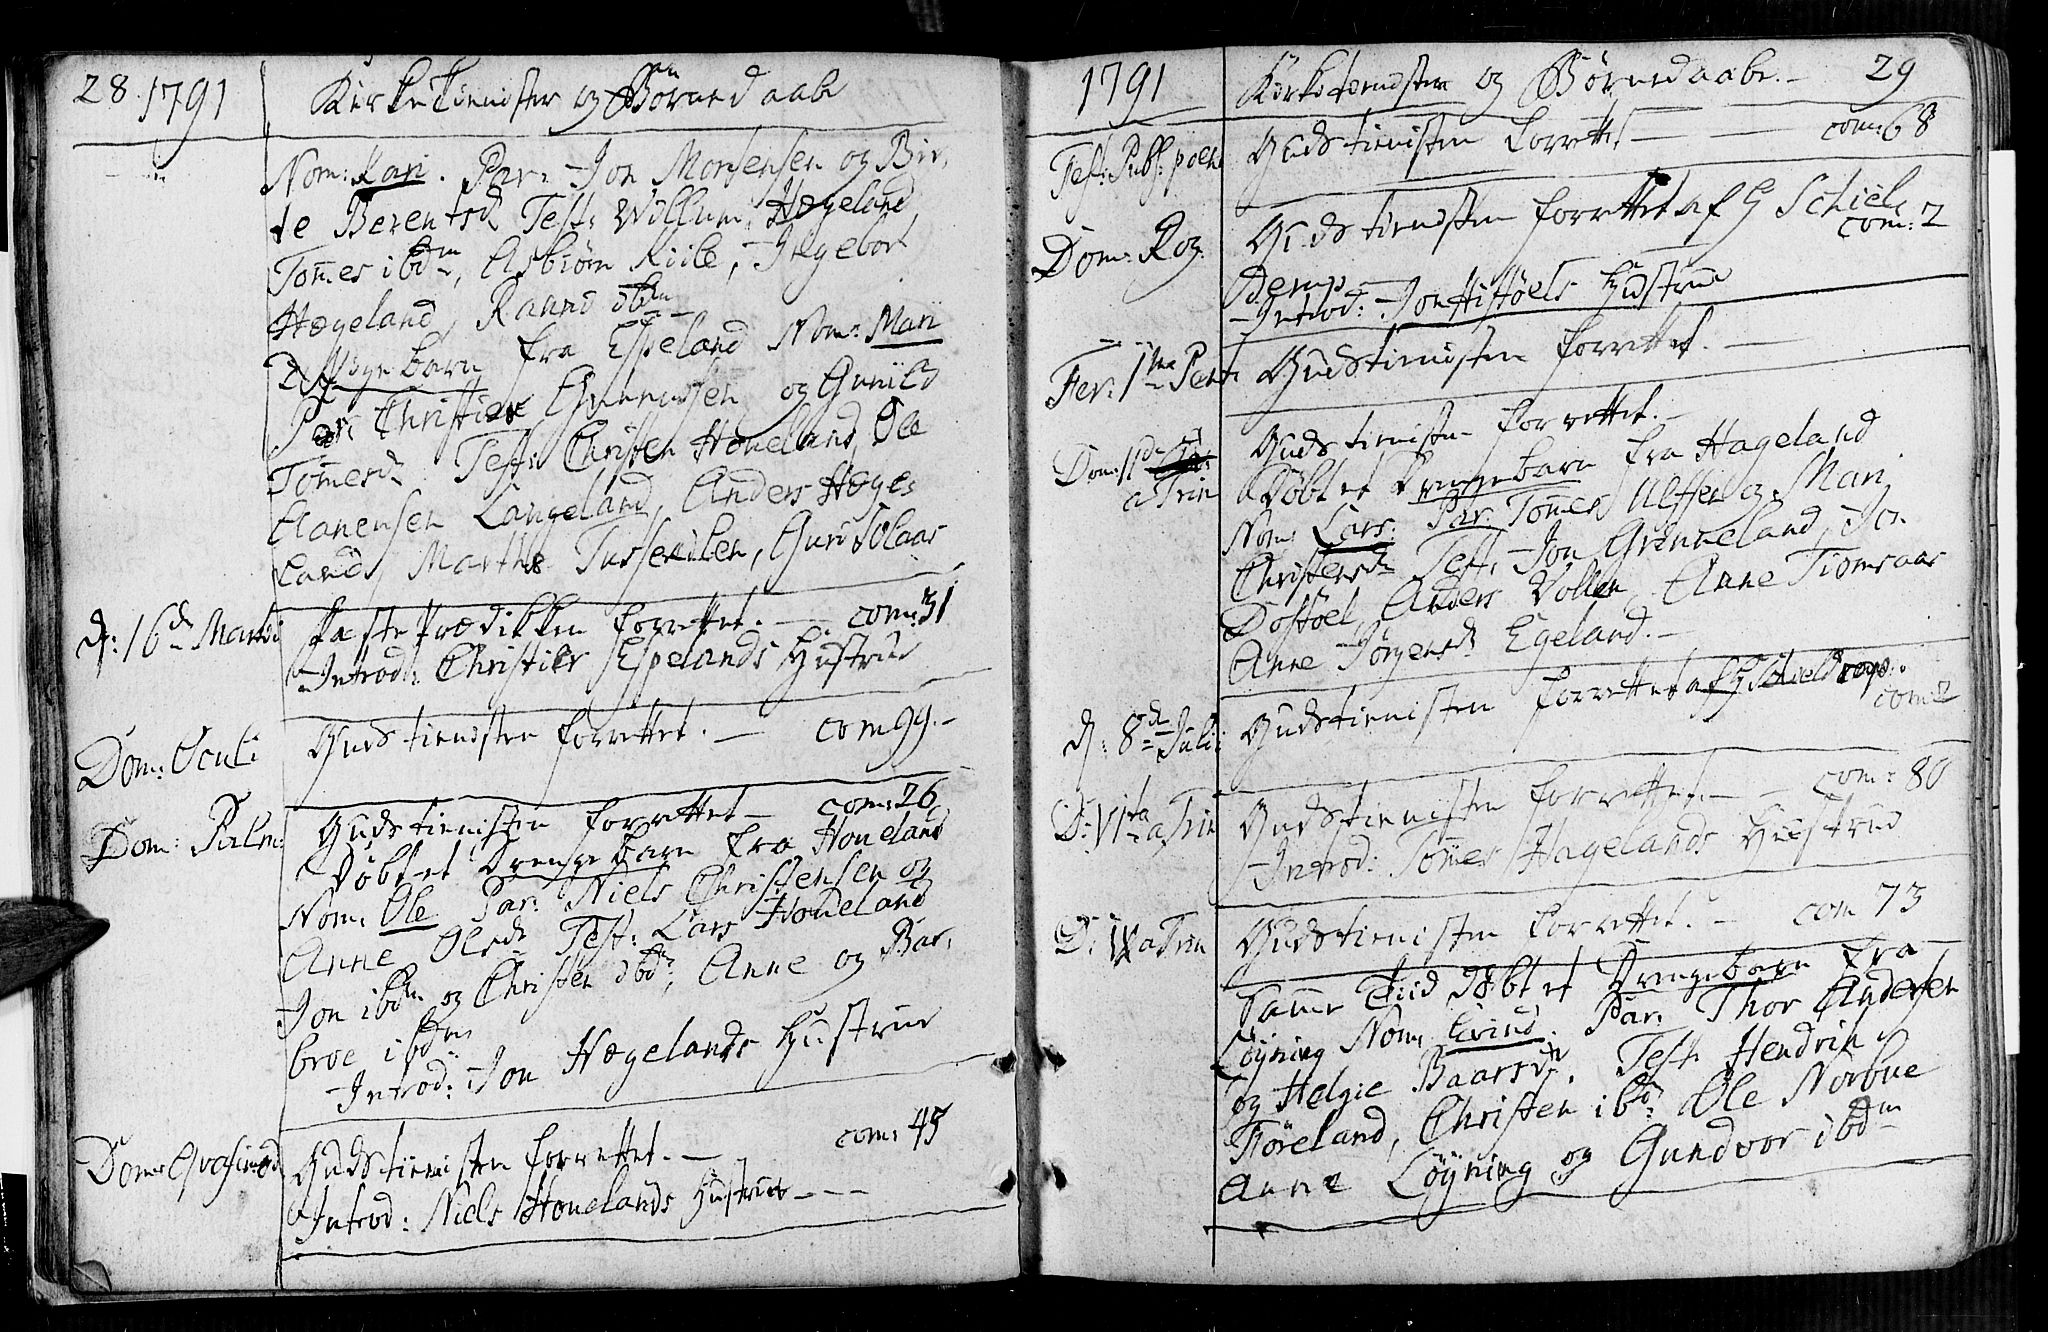 28. 1791 Kirketienister og Børnedaab
Nom: Kari. Par: Jon Mortensen og Bir,
te Berentsd Test: Willum Hægeland,
Tom̅es ibdm, Asbiørn Kiile, Ingebort
Hægeland, Rannd ibdm
Pigebarn fra Espeland Nom: Mari
Par: Christien Gunnufsen og Gunild
Tom̅esd. Test: Christen Honeland, Ole
Aanensen Langeland, Anders Hæge,
land, Marthe Tusseviken, Guri Solaas
d: 16d Martii Faste Prædikken forrettet. — com: 31
Introd: Christies Espelands Hustrue
Dom: Oculi Gudstienisten forrettet. — com 99. –
Dom: Palm: Gudstienisten forrettet — com: 26
Døbt et Drengebarn fra Honeland
Nom: Ole Par: Niels Christensen og
Anne Olsd Test: Lars Honeland
Jon ibdm og Christen ibd: Anne og Bar,
broe ibdm
Introd: Jon Hægelands Hustrue
Dom: Qvasimod Gudstienisten forrettet. — com: 45
Introd: Niels Honelands Hustrue – – –
1791 Kirketienister og Børnedaab. – 29
Fest: Publ: poenit Gudstienisten forrettet — — com: 68
Dom: Rog. Gudstienisten forrettet af H Schiel
derup — com: 2
Introd: Jon Høels Hustrue
Fer: 1ma Pent: Gudstienisten forrettet. —
Dom: 1de Gudstienisten forrettet. –
a Trin Døbt et Drengebarn fra Hageland
Nom: Lars. Par: Tom̅es Ulfsen og Mari
Christensd. Test: Jon Grinneland, Jon
Dostøel Anders Vollen, Anne Tiomsaas
Anne Jørgensd. Egeland. –
d: 8de Julii Gudstienisten forrettet af H Schieldrop.
com: 2
D: VIta a Trin Gudstienisten forrettet. — – com: 80
Introd: Tom̅es Hagelands Hustrue
D: IX a Trin Gudstienisten forrettet. – com 73
Sam̅e Tiid Døbt et Drengebarn fra
Løyning Nom: Eivind. Par: Thor Andersen
og Helgie Baarsd. Test: Hendrik
Føreland, Christen ibd: Ole Norbue
Anne Løyning og Gundvor ibdm